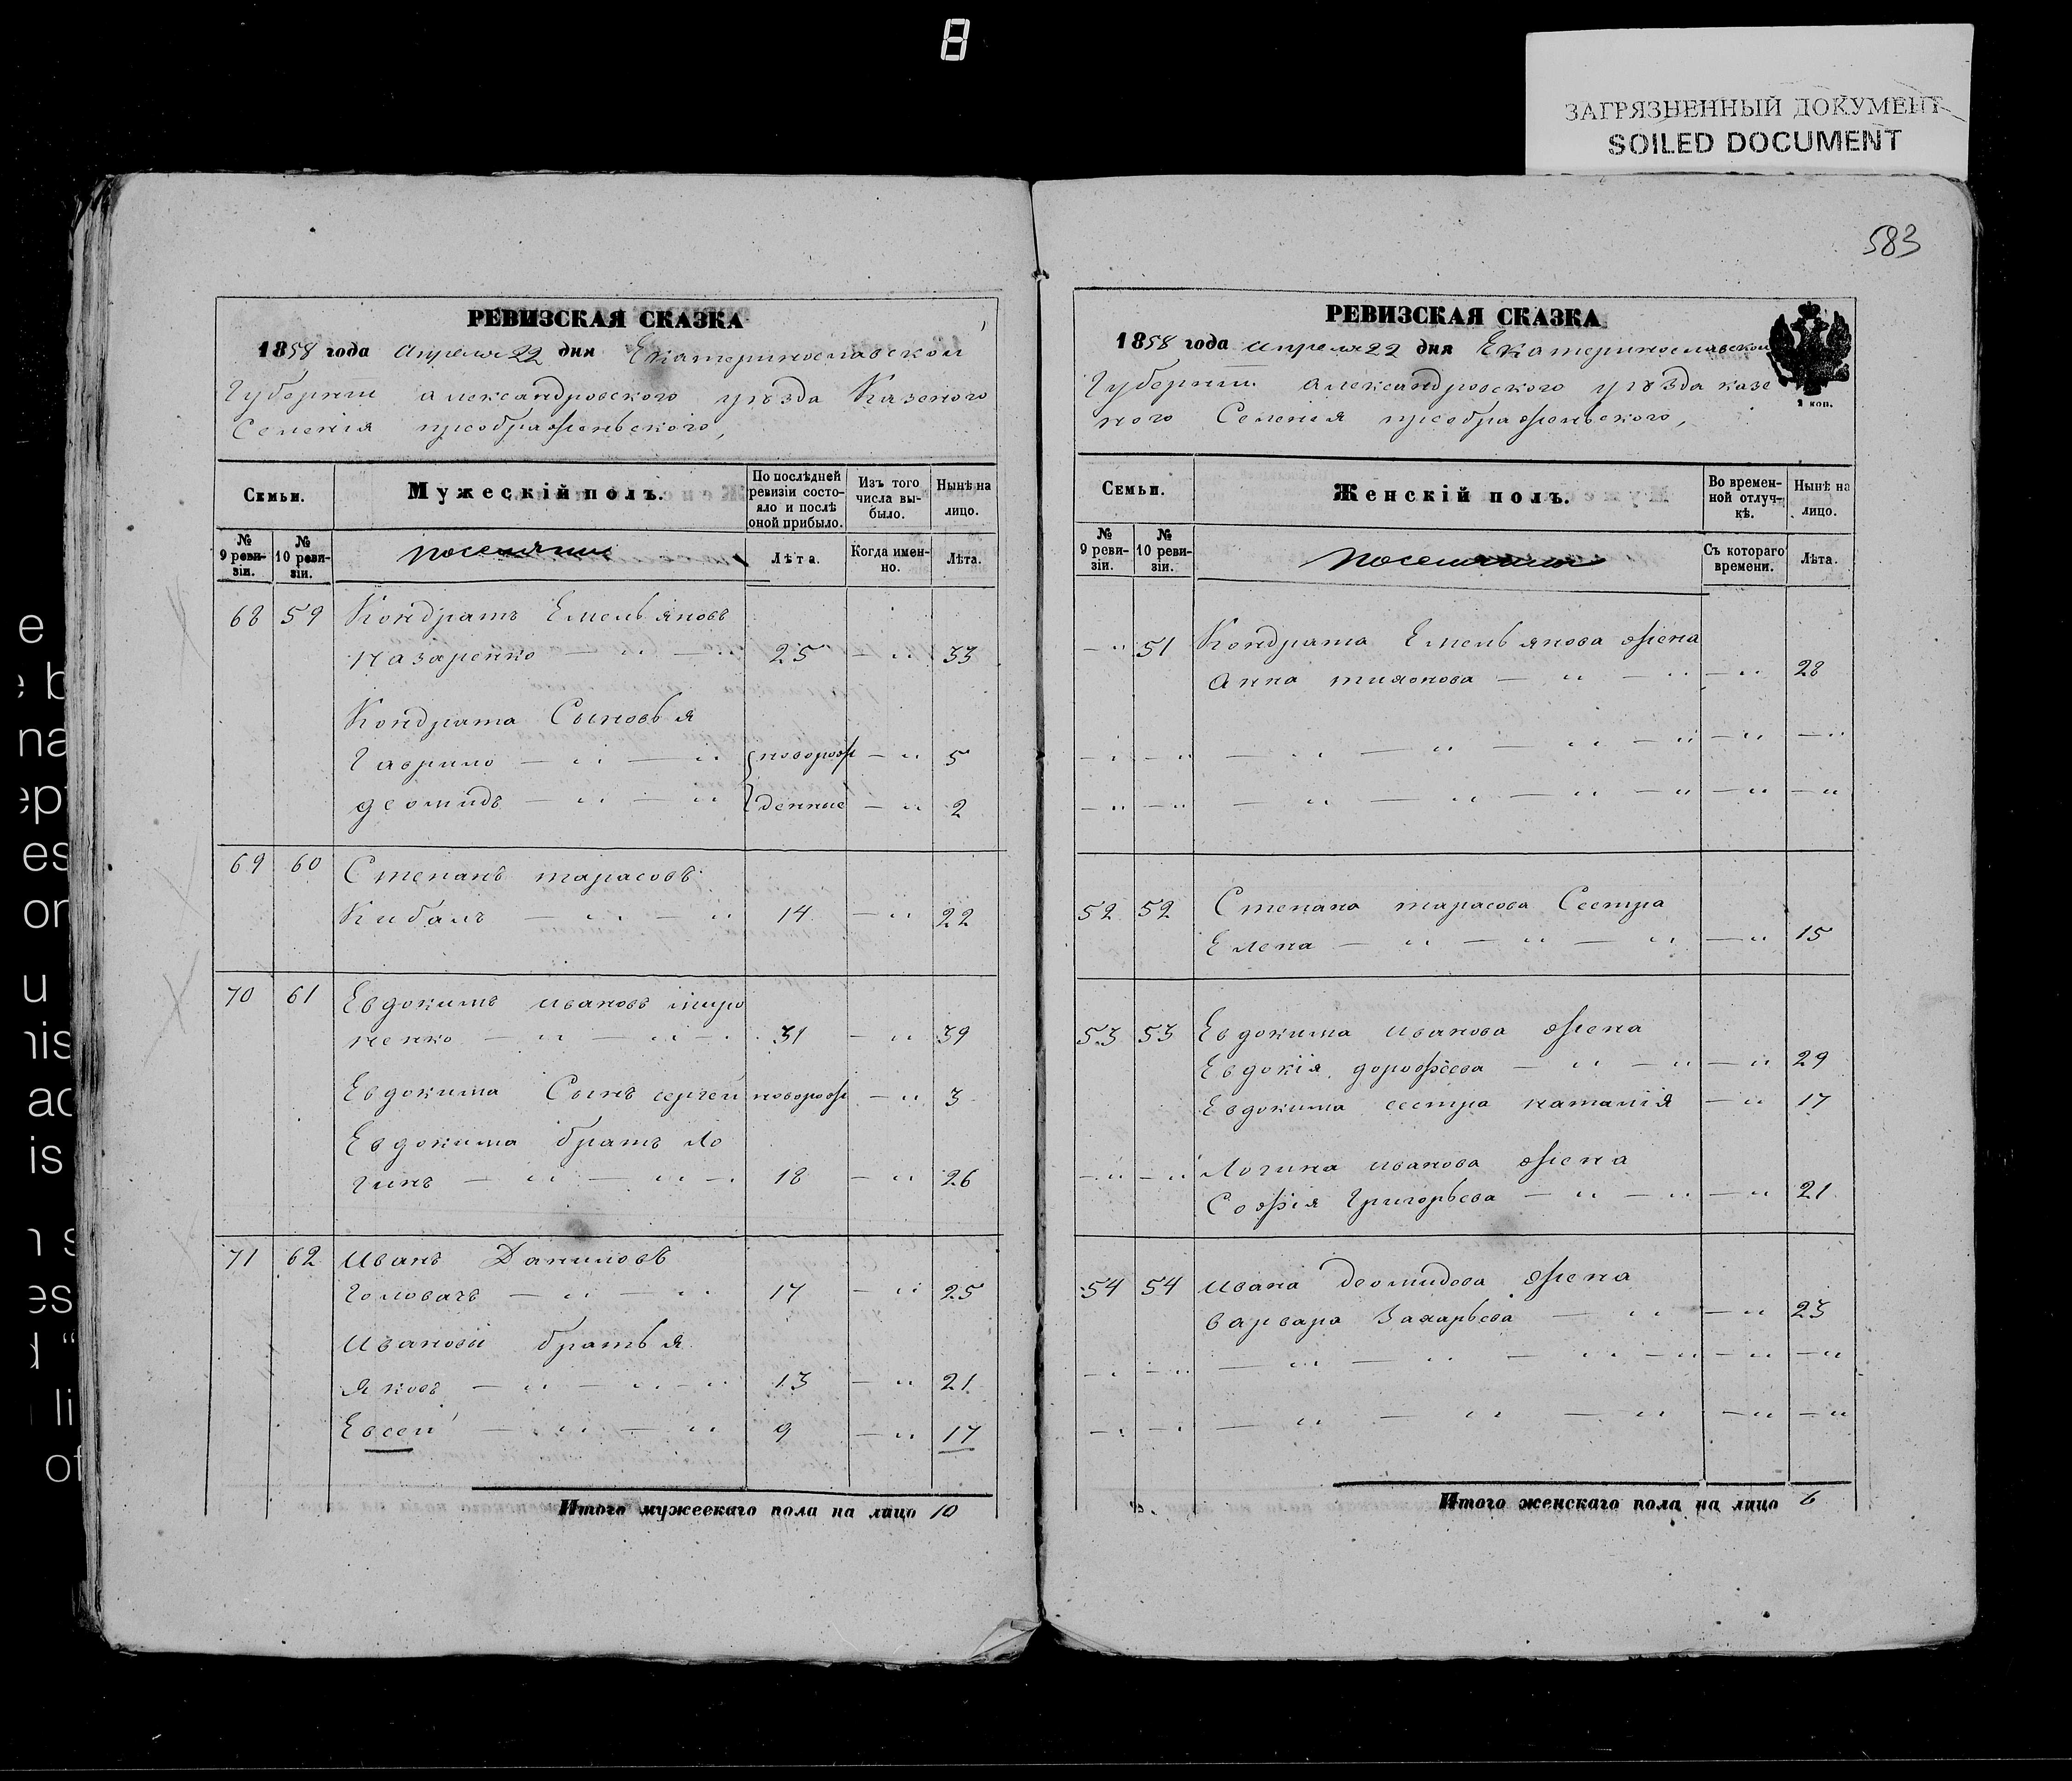 8
ЗАГРЯЗНЕННЫЙ ДОКУМЕНТ
SOILED DOCUMENT
РЕВИЗСКАЯ СКАЗКА
1858 года Апреля 22 дня Екатеринославской
Губернии Александровского уѣзда Казеного
Селенія преображеньского,
Семьи.
Мужескій полъ.
По послѣдней ревизіи состояло и послѣ оной прибыло.
Изъ того числа выбыло.
Нынѣ на лицо.
№ 9 ревизіи.
№ 10 ревизіи.
поселяние
Лѣта.
Когда именно.
Лѣта.
68 59 Кондратъ Емельяновъ
Назаренко — " — 25 — " 33
Кондрата Сыновья
Гаврило — " — " новорож — " 5
деомидъ — " — " денние — " 2
69 60 Степанъ тарасовъ
Кибалъ — " — " 14 — " 22
70 61 Евдокимъ ивановъ миро
ненко — " — " — 31 — " 39
Евдокима Сынъ сергей новорож — " 3
Евдокима братъ Ло
гинъ — " — " — 18 — " 26
71 62 Иванъ Даниловъ
Головачъ — " — " 17 — " 25
Ивановы братья
Яковъ — " — " — " 13 — " 21
Евсей — " — " 9 — " 17
Итого мужескаго пола на лицо 10
583
РЕВИЗСКАЯ СКАЗКА
1858 года апреля 22 дня Екатеринославской
Губернии Александровского уѣзда казе
ного Селенія преображеньского,
2 коп.
Семьи.
Женскій полъ.
Во временной отлучкѣ.
Нынѣ на лицо.
№ 9 ревизіи.
№ 10 ревизіи.
Съ котораго времени.
Лѣта.
— " 51 Кондрата Емельянова жена
Анна тихонова — " — " — " 28
52 52 Степана тарасова Сестра
Елена — " — " — " — " 15
53 53 Евдокима иванова жена
Евдокія дорофѣева — " — " — " 29
Евдокима сестра наталія — " 17
— " — " Логина иванова жена
Софія Григорьева — " — " — " 21
54 54 Ивана деомидова жена
варвара Захарьева — " — " 23
Итого женскаго пола на лицо 6